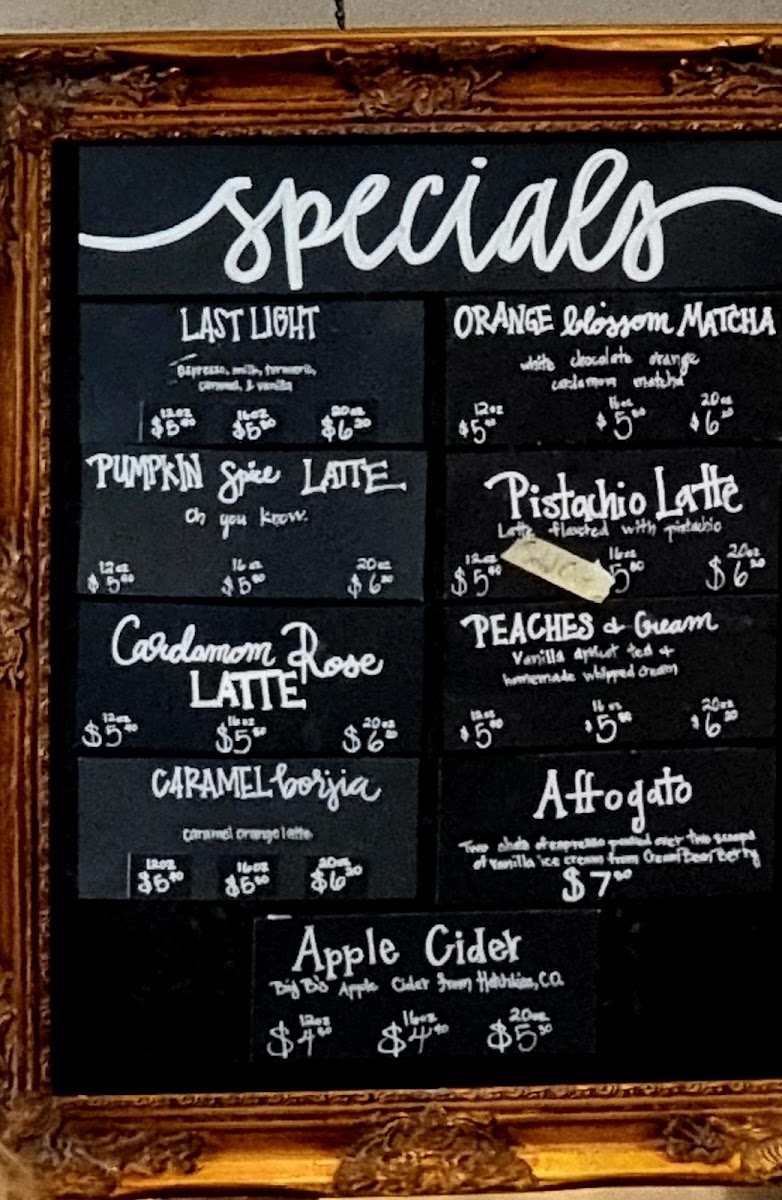 specials
LAST LIGHT
Espresso, milk, turmeric,
caramel, & vanilla
12oz 16oz 20oz
$5 $5 $6
PUMPKIN Spice LATTE
Oh you know.
12oz 16oz 20oz
$5 $5 $6
Cardamom Rose
LATTE
12oz 16oz 20oz
$5 $5 $6
CARAMEL borjia
Caramel orange latte
12oz 16oz 20oz
$5 $5 $6
ORANGE blossom MATCHA
white chocolate orange
cardamom matcha
12oz 16oz 20oz
$5 $5 $6
Pistachio Latte
Latte flavored with pistachio
12oz 16oz 20oz
$5 5 $6
PEACHES & Cream
Vanilla apricot tea +
homemade whipped cream
12oz 16oz 20oz
$5 $5 $6
Affogato
Two shots of espresso poured over two scoops
of Vanilla ice cream from Cream Bean Berry
$7
Apple Cider
Big B's Apple Cider from Hotchkiss, CO.
12oz 16oz 20oz
$4 $4 $5